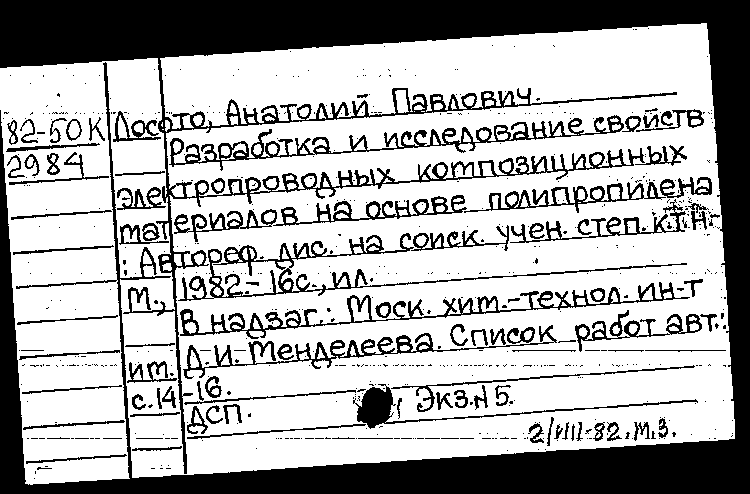 82-50К Лосото, Анатолий Павлович.
2984 Разработка и исследование свойств
электропроводных композиционных
материалов на основе полипропилена
: Автореф. дис. на соиск. учен. степ. к.т.н.
М., 1982.- 16с., ил.
В надзаг.: Моск. хим.-технол. ин-т
им. Д.И. Менделеева. Список работ авт.:
с.14-16.
ДСП. Экз.№5.
2/VIII-82. М.З.